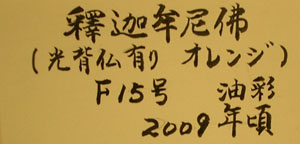 釋迦牟尼佛
(光背仏有り オレンジ)
F15号 油彩
2009年頃